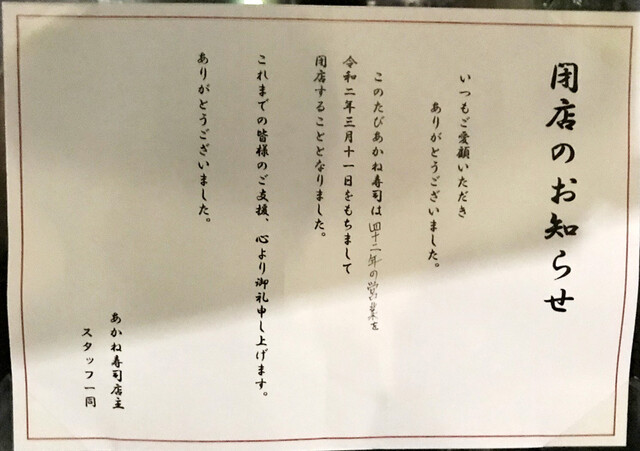 閉店のお知らせ
いつもご愛顧いただき
ありがとうございました。
このたびあかね寿司は四十二年の営業を
令和二年三月十一日をもちまして
閉店することとなりました。
これまでの皆様のご支援、心より御礼申し上げます。
ありがとうございました。
あかね寿司店主
スタッフ一同